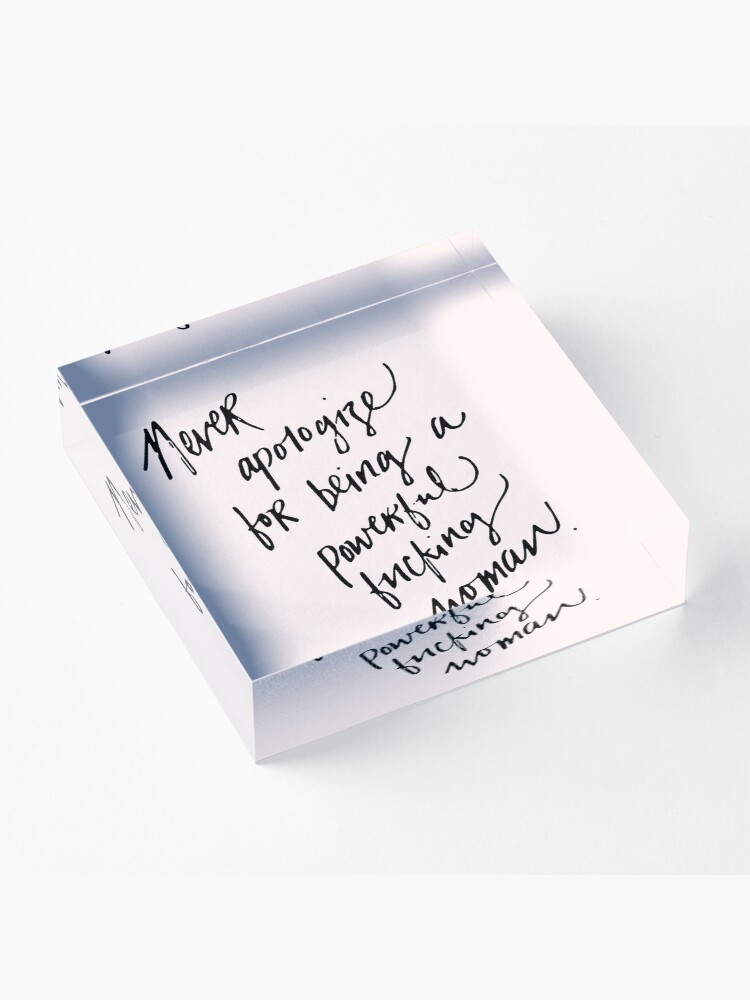 Never
apologize
for being a
powerful
fucking
woman.
powerful
fucking
woman.
Nev
fo